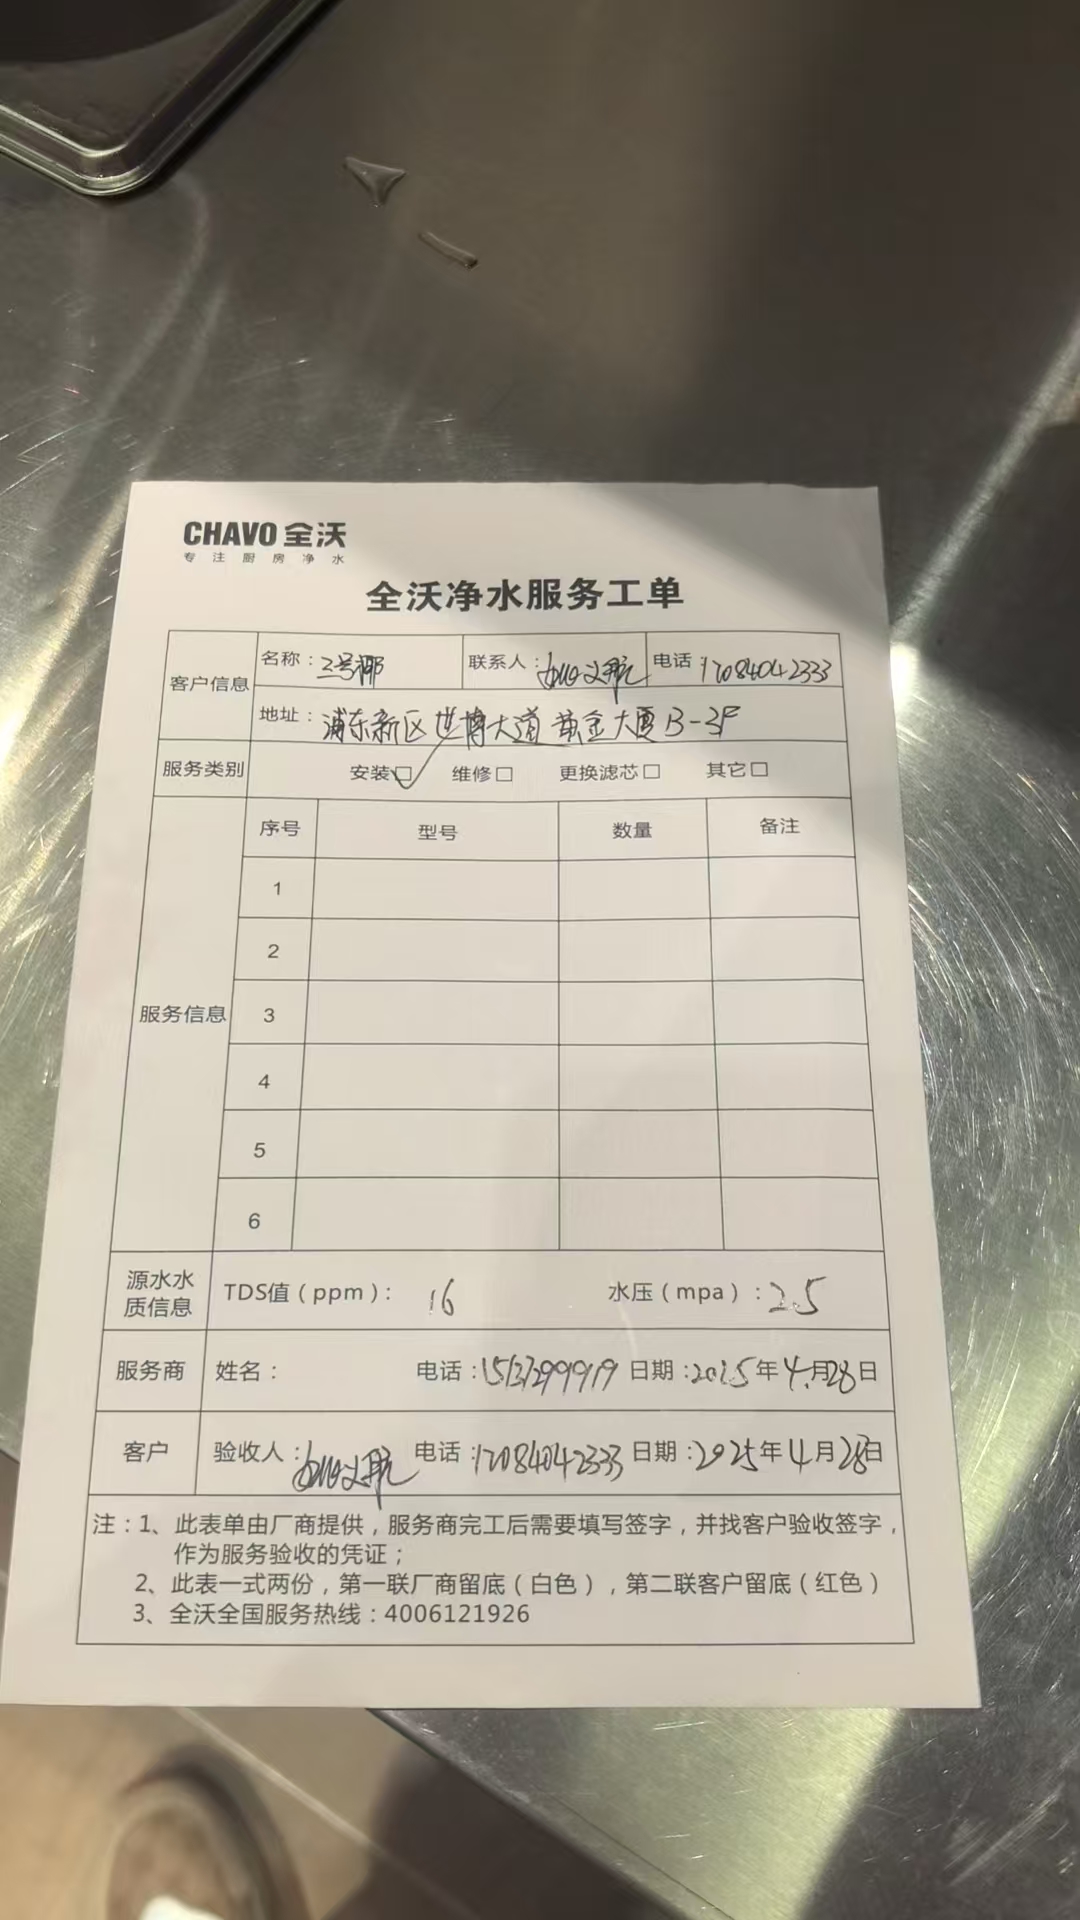 CHAVO 全沃
专注厨房净水
全沃净水服务工单
客户信息 名称：三号椰 联系人： 电话：17084042333
地址：浦东新区世博大道黄金大厦B-3F
服务类别 安装☑ 维修□ 更换滤芯□ 其它□
服务信息 序号 型号 数量 备注
1
2
3
4
5
6
源水水质信息 TDS值（ppm）：16 水压（mpa）：2.5
服务商 姓名： 电话：15131299919 日期：2025年4月28日
客户 验收人： 电话：17084042333 日期：2025年4月28日
注：1、此表单由厂商提供，服务商完工后需要填写签字，并找客户验收签字，
作为服务验收的凭证；
2、此表一式两份，第一联厂商留底（白色），第二联客户留底（红色）
3、全沃全国服务热线：4006121926